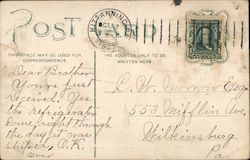 POST CARD
KITTANNING
1907
THIS SPACE MAY BE USED FOR
CORRESPONDENCE
THE ADDRESS ONLY TO BE
WRITTEN HERE
Dear Brother
Yours just
received, Yes
the refrigerator
Come, right through
the day it was
O.K.
Ever
C. W. Esq
553 Mifflin Ave
Wilkinsburg
Pa